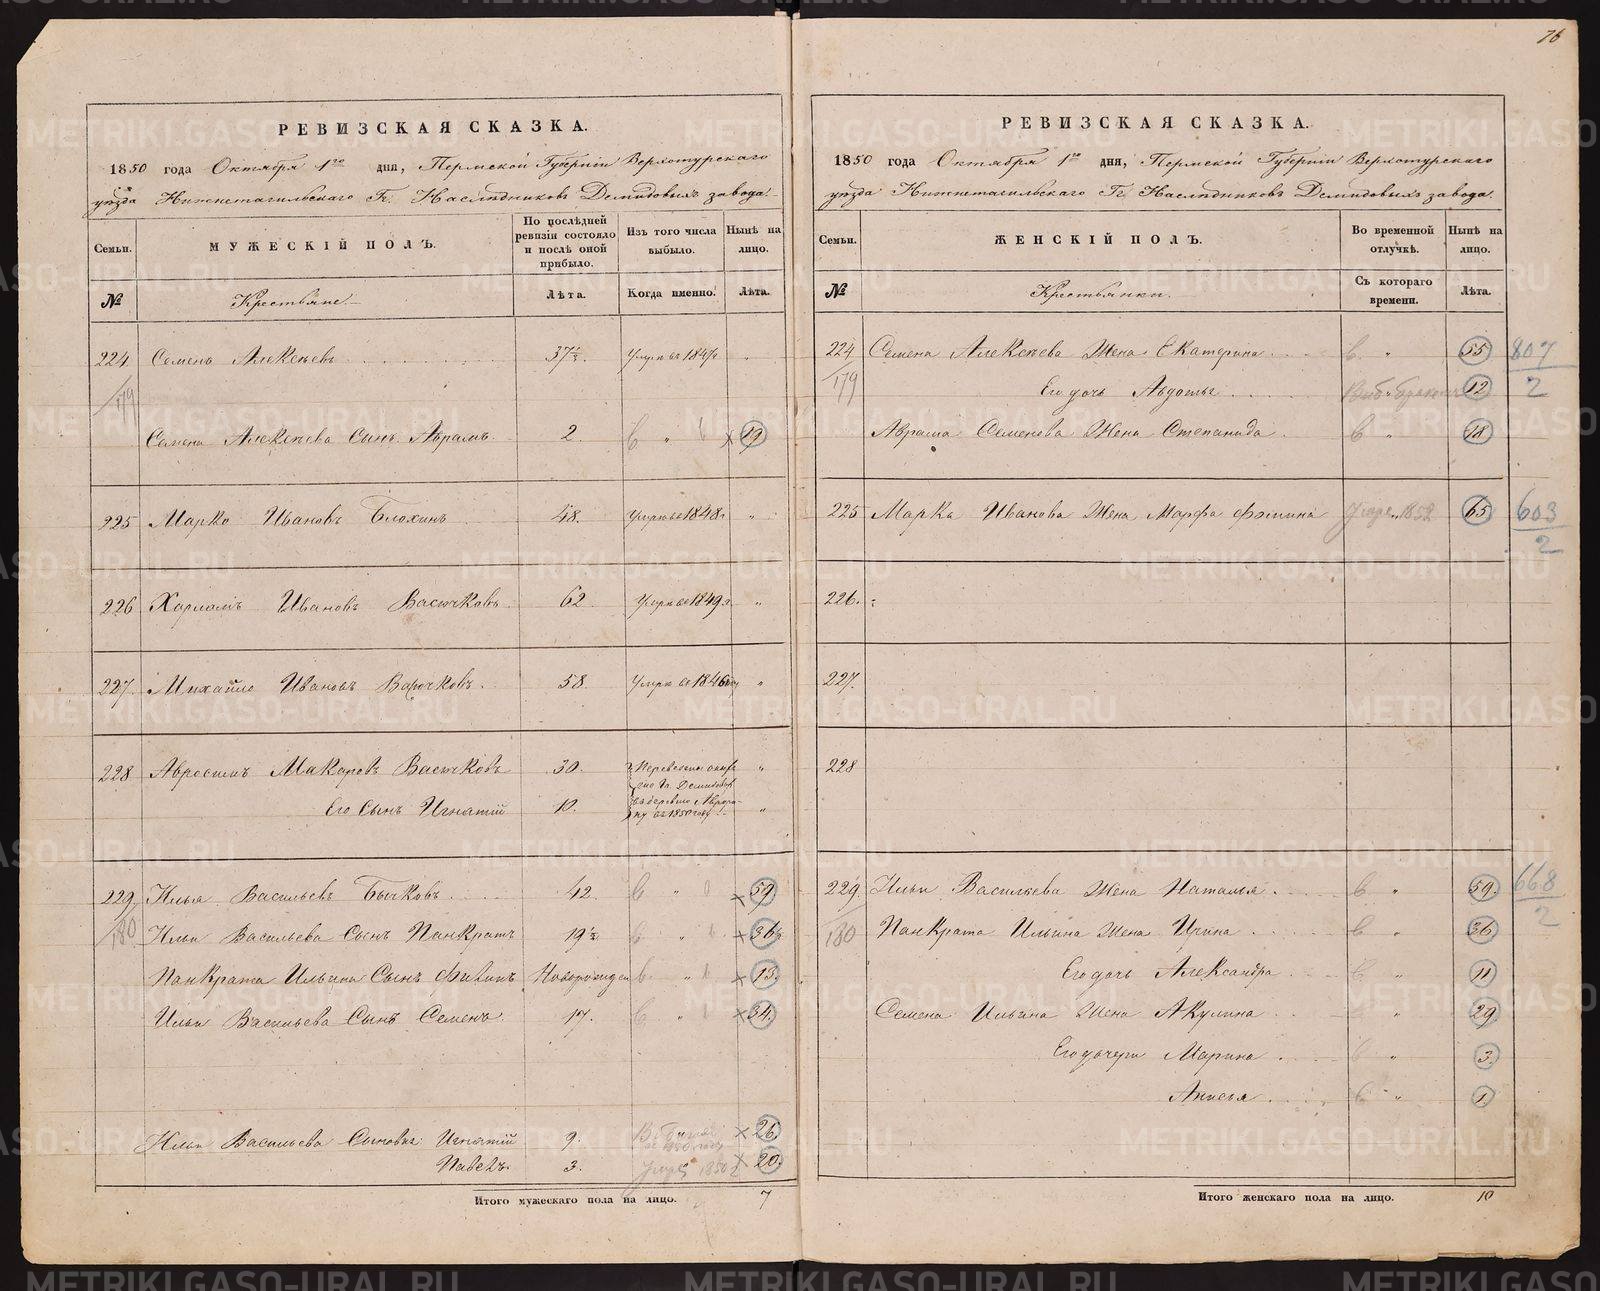 76
РЕВИЗСКАЯ СКАЗКА.
1850 года Октября 1го дня, Пермской Губернiи Верхотурскаго
уѣзда Нижнетагильскаго Гг. Наслѣдниковъ Демидовыхъ завода.
Семьи.
МУЖЕСКIЙ ПОЛЪ.
По послѣдней ревизiи состояло и послѣ оной прибыло.
Изъ того числа выбыло.
Нынѣ на лицо.
№
Крестьяне
Лѣта.
Когда именно.
Лѣта.
224. Семенъ Алексѣевъ 37½. Умеръ въ 1847г "
179
Семена Алексѣева Сынъ Абрамъ. 2. " 19
225 Марко Ивановъ Блохинъ 48. Умеръ въ 1848г "
226 Харламъ Ивановъ Васючковъ 62. Умеръ въ 1849г. "
227. Михайло Ивановъ Васючковъ. 58. Умеръ въ 1846 "
228 Авросимъ Макаровъ Васючковъ 30. "
Его Сынъ Игнатiй 10. въ 1850 году "
229. Илья Васильевъ Бычковъ 42. " 59
180
Ильи Васильева Сынъ Панкратъ 19½ " 36½
Панкрата Ильина Сынъ Филипъ Новорожден " 13.
Ильи Васильева Сынъ Семенъ. 17. " 34.
Ильи Васильева Сыновья: Игнатiй 9. 26.
Павелъ. 3. Умеръ 1850 20.
Итого мужескаго пола на лицо. 7
РЕВИЗСКАЯ СКАЗКА.
1850 года Октября 1го дня, Пермской Губернiи Верхотурскаго
уѣзда Нижнетагильскаго Гг. Наслѣдниковъ Демидовыхъ завода.
Семьи.
ЖЕНСКIЙ ПОЛЪ.
Во временной отлучкѣ.
Нынѣ на лицо.
№
Крестьянки.
Съ котораго времени.
Лѣта.
224 Семена Алексѣева Жена Екатерина " 55 807
179 2
Его дочь Авдотья 12
Абрама Семенова Жена Степанида " 18
225 Марка Ивановa Жена Марфа Фомина Умер. 1852 65 603
2
226.
227.
228
229. Ильи Васильева Жена Наталья " 59. 668
2
180 Панкрата Ильина Жена Ирина " 36
Его дочь Александра " 11
Семена Ильина Жена Акулина " 29
Его дочери Марина " 3.
Анисья " 1.
Итого женскаго пола на лицо. 10
METRIKI.GASO-URAL.RU